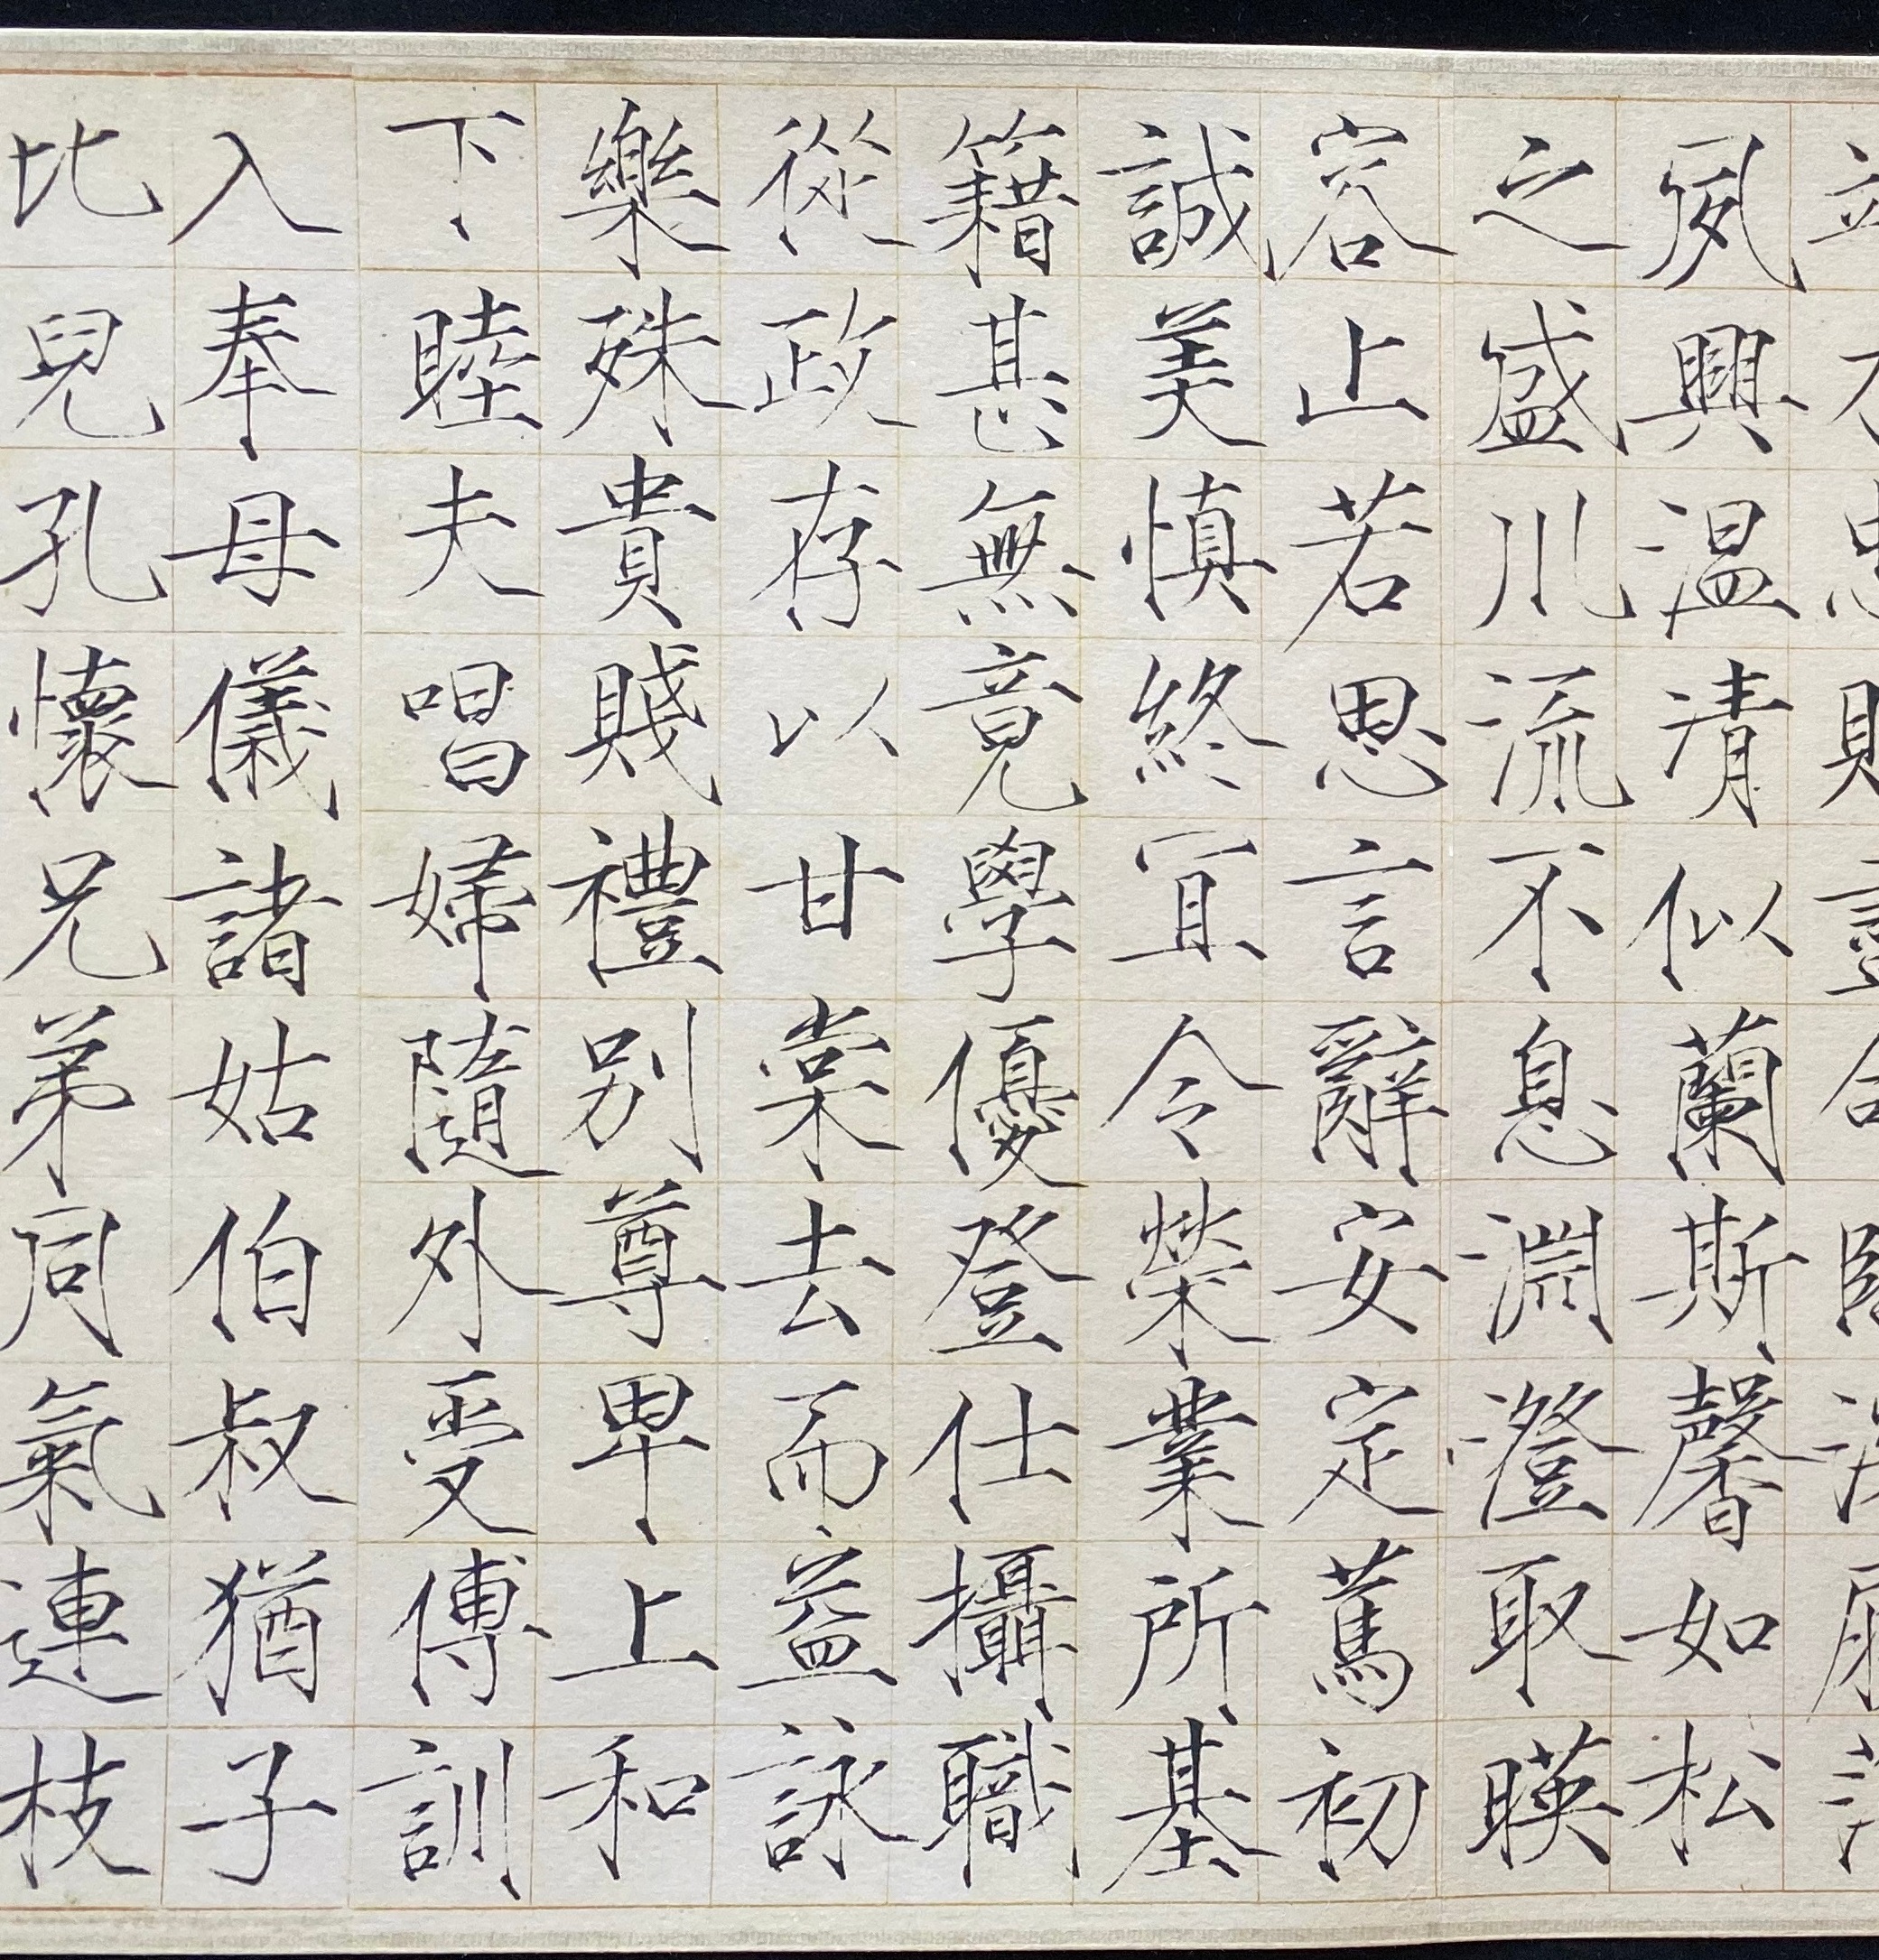 夙興温清似蘭斯馨如松
之盛川流不息淵澄取暎
容止若思言辭安定篤初
誠美慎終宜令榮業所基
籍甚無竟學優登仕攝職
從政存以甘棠去而益詠
樂殊貴賤禮別尊卑上和
下睦夫唱婦隨外受傅訓
入奉母儀諸姑伯叔猶子
比兒孔懷兄弟同氣連枝